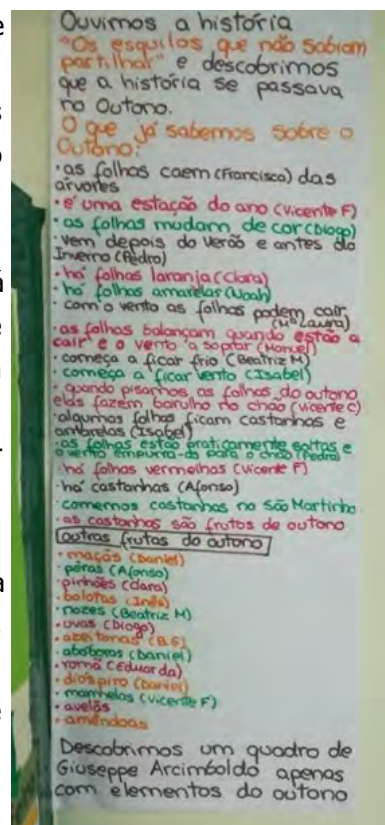 Ouvimos a história
"Os esquilos que não sabiam
partilhar" e descobrimos
que a história se passava
no Outono.
O que já sabemos sobre o
Outono:
·as folhas caem (Francisca) das
árvores
·é uma estação do ano (Vicente F)
·as folhas mudam de cor (Diogo)
·vem depois do verão e antes do
Inverno (Pedro)
·há folhas laranja (Clara)
·há folhas amarelas (Noah)
·com o vento as folhas podem cair
(Mª Laura)
·as folhas balançam quando estão a
cair e o vento a soprar (Manuel)
·começa a ficar frio (Beatriz M)
·começa a ficar vento (Isabel)
·quando pisamos as folhas do outono
elas fazem barulho no chão (Vicente C)
·algumas folhas ficam castanhas e
amarelas (Isabel)
·as folhas estão praticamente soltas e
o vento empurra-as para o chão (Pedro)
·há folhas vermelhas (Vicente F)
·há castanhas (Afonso)
·comemos castanhas no São Martinho
·as castanhas são frutos de outono
outras frutas do outono
·maçãs (Daniel)
·pêras (Afonso)
·pinhões (Clara)
·bolotas (Inês)
·nozes (Beatriz M)
·uvas (Diogo)
·azeitonas (B.S)
·abóboras (Daniel)
·romã (Eduarda)
·dióspiro (Daniel)
·marmelos (Vicente F)
·avelãs
·amêndoas
Descobrimos um quadro de
Giuseppe Arcimboldo apenas
com elementos do outono